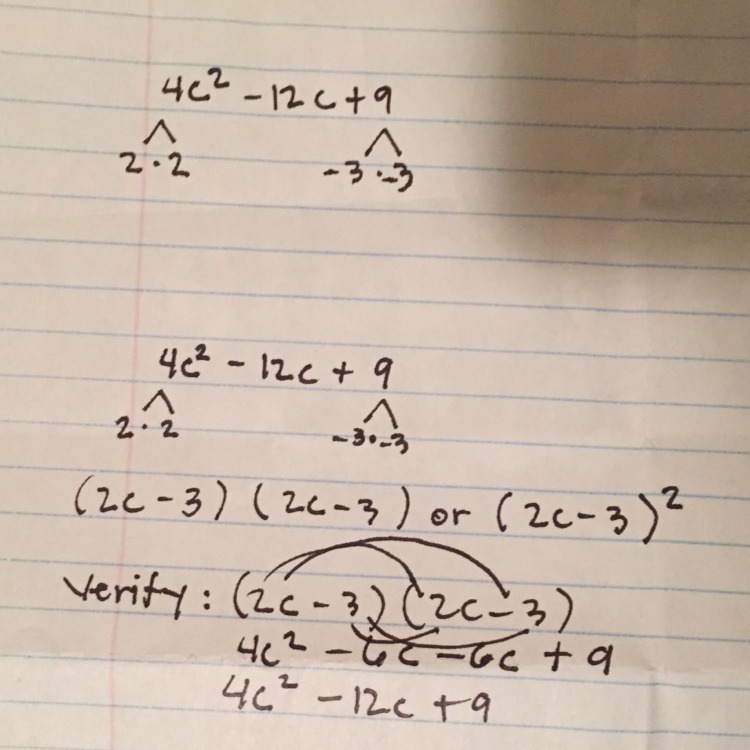 4c² - 12c + 9
2 · 2 -3 · -3
4c² - 12c + 9
2 · 2 -3 · -3
(2c - 3) (2c - 3) or (2c - 3)²
Verify: (2c - 3) (2c - 3)
4c² - 6c - 6c + 9
4c² - 12c + 9